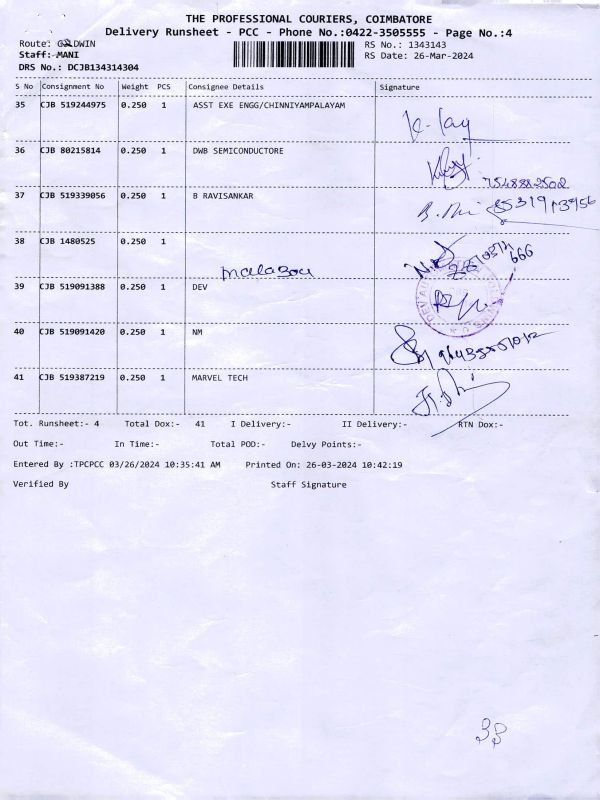 THE PROFESSIONAL COURIERS, COIMBATORE
Delivery Runsheet - PCC - Phone No.:0422-3505555 - Page No.:4
Route: GOLDWIN RS No.: 1343143
Staff: MANI RS Date: 26-Mar-2024
DRS No.: DCJB134314304
S No Consignment No Weight PCS Consignee Details Signature
35 CJB 519244975 0.250 1 ASST EXE ENGG/CHINNIYAMPALAYAM
36 CJB 80215814 0.250 1 DWB SEMICONDUCTORE
37 CJB 519339056 0.250 1 B RAVISANKAR
38 CJB 1480525 0.250 1
39 CJB 519091388 0.250 1 DEV
40 CJB 519091420 0.250 1 NM
41 CJB 519387219 0.250 1 MARVEL TECH
Tot. Runsheet:- 4 Total Dox:- 41 I Delivery:- II Delivery:- RTN Dox:-
Out Time:- In Time:- Total POD:- Delvy Points:-
Entered By :TPCPCC 03/26/2024 10:35:41 AM Printed On: 26-03-2024 10:42:19
Verified By Staff Signature